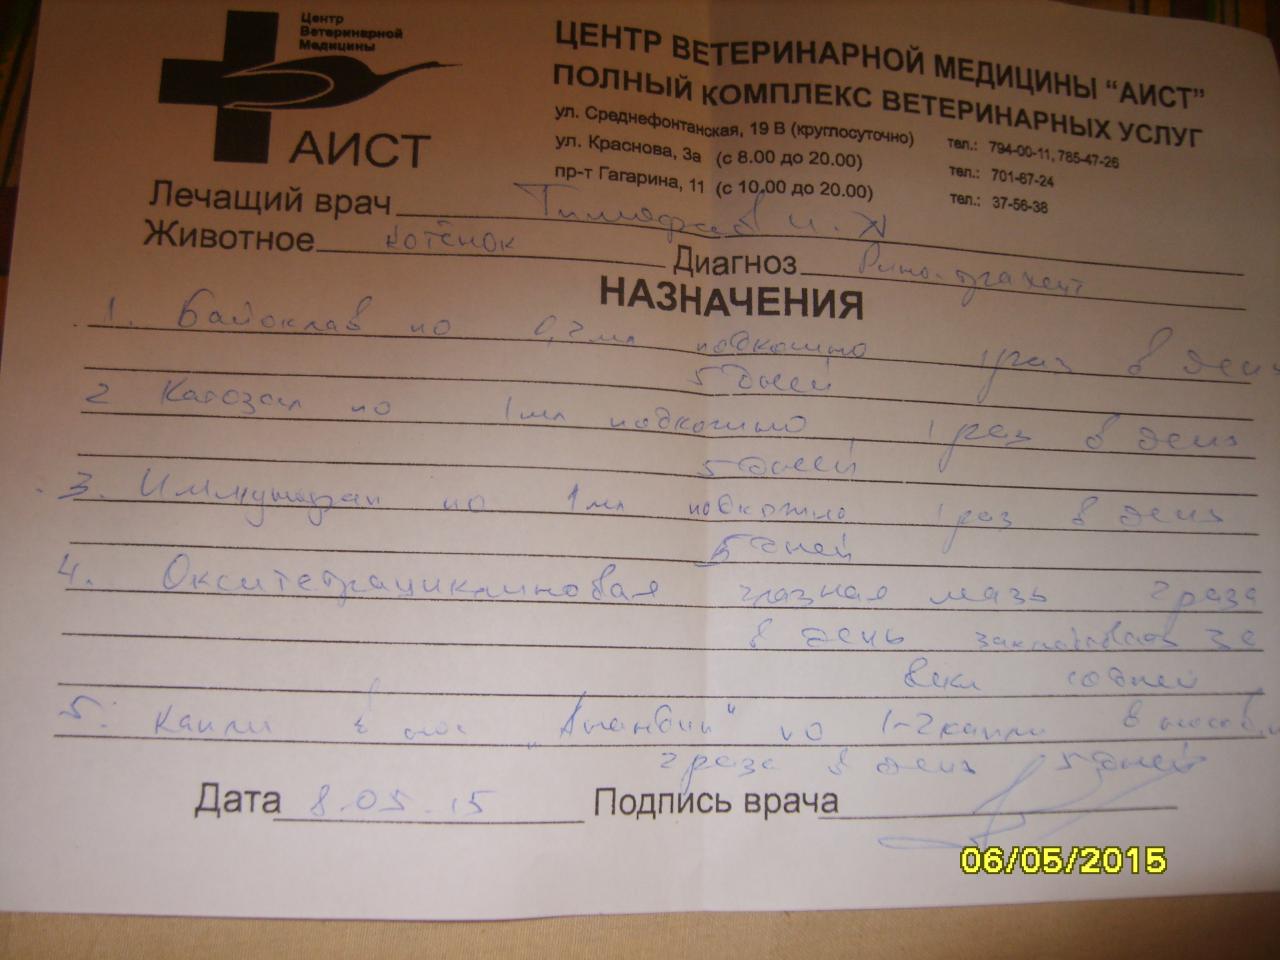 Центр
Ветеринарной
Медицины
АИСТ
ЦЕНТР ВЕТЕРИНАРНОЙ МЕДИЦИНЫ “АИСТ”
ПОЛНЫЙ КОМПЛЕКС ВЕТЕРИНАРНЫХ УСЛУГ
ул. Среднефонтанская, 19 В (круглосуточно) тел.: 794-00-11, 785-47-26
ул. Краснова, 3а (с 8.00 до 20.00) тел.: 701-67-24
пр-т Гагарина, 11 (с 10.00 до 20.00) тел.: 37-56-38
Лечащий врач
Животное котёнок Диагноз
НАЗНАЧЕНИЯ
1. Байоклав по 0,2мл подкожно 1 раз в день
5 дней
2 Катозал по 1мл подкожно 1 раз в день
5 дней
3. по 1мл подкожно 1 раз в день
5 дней
4. Окситетрациклиновая глазная мазь 2 раза
в день за
веки 10 дней
5. Капли в нос по 1-2 капли в
2 раза в день 5 дней
Дата 8.05.15 Подпись врача
06/05/2015